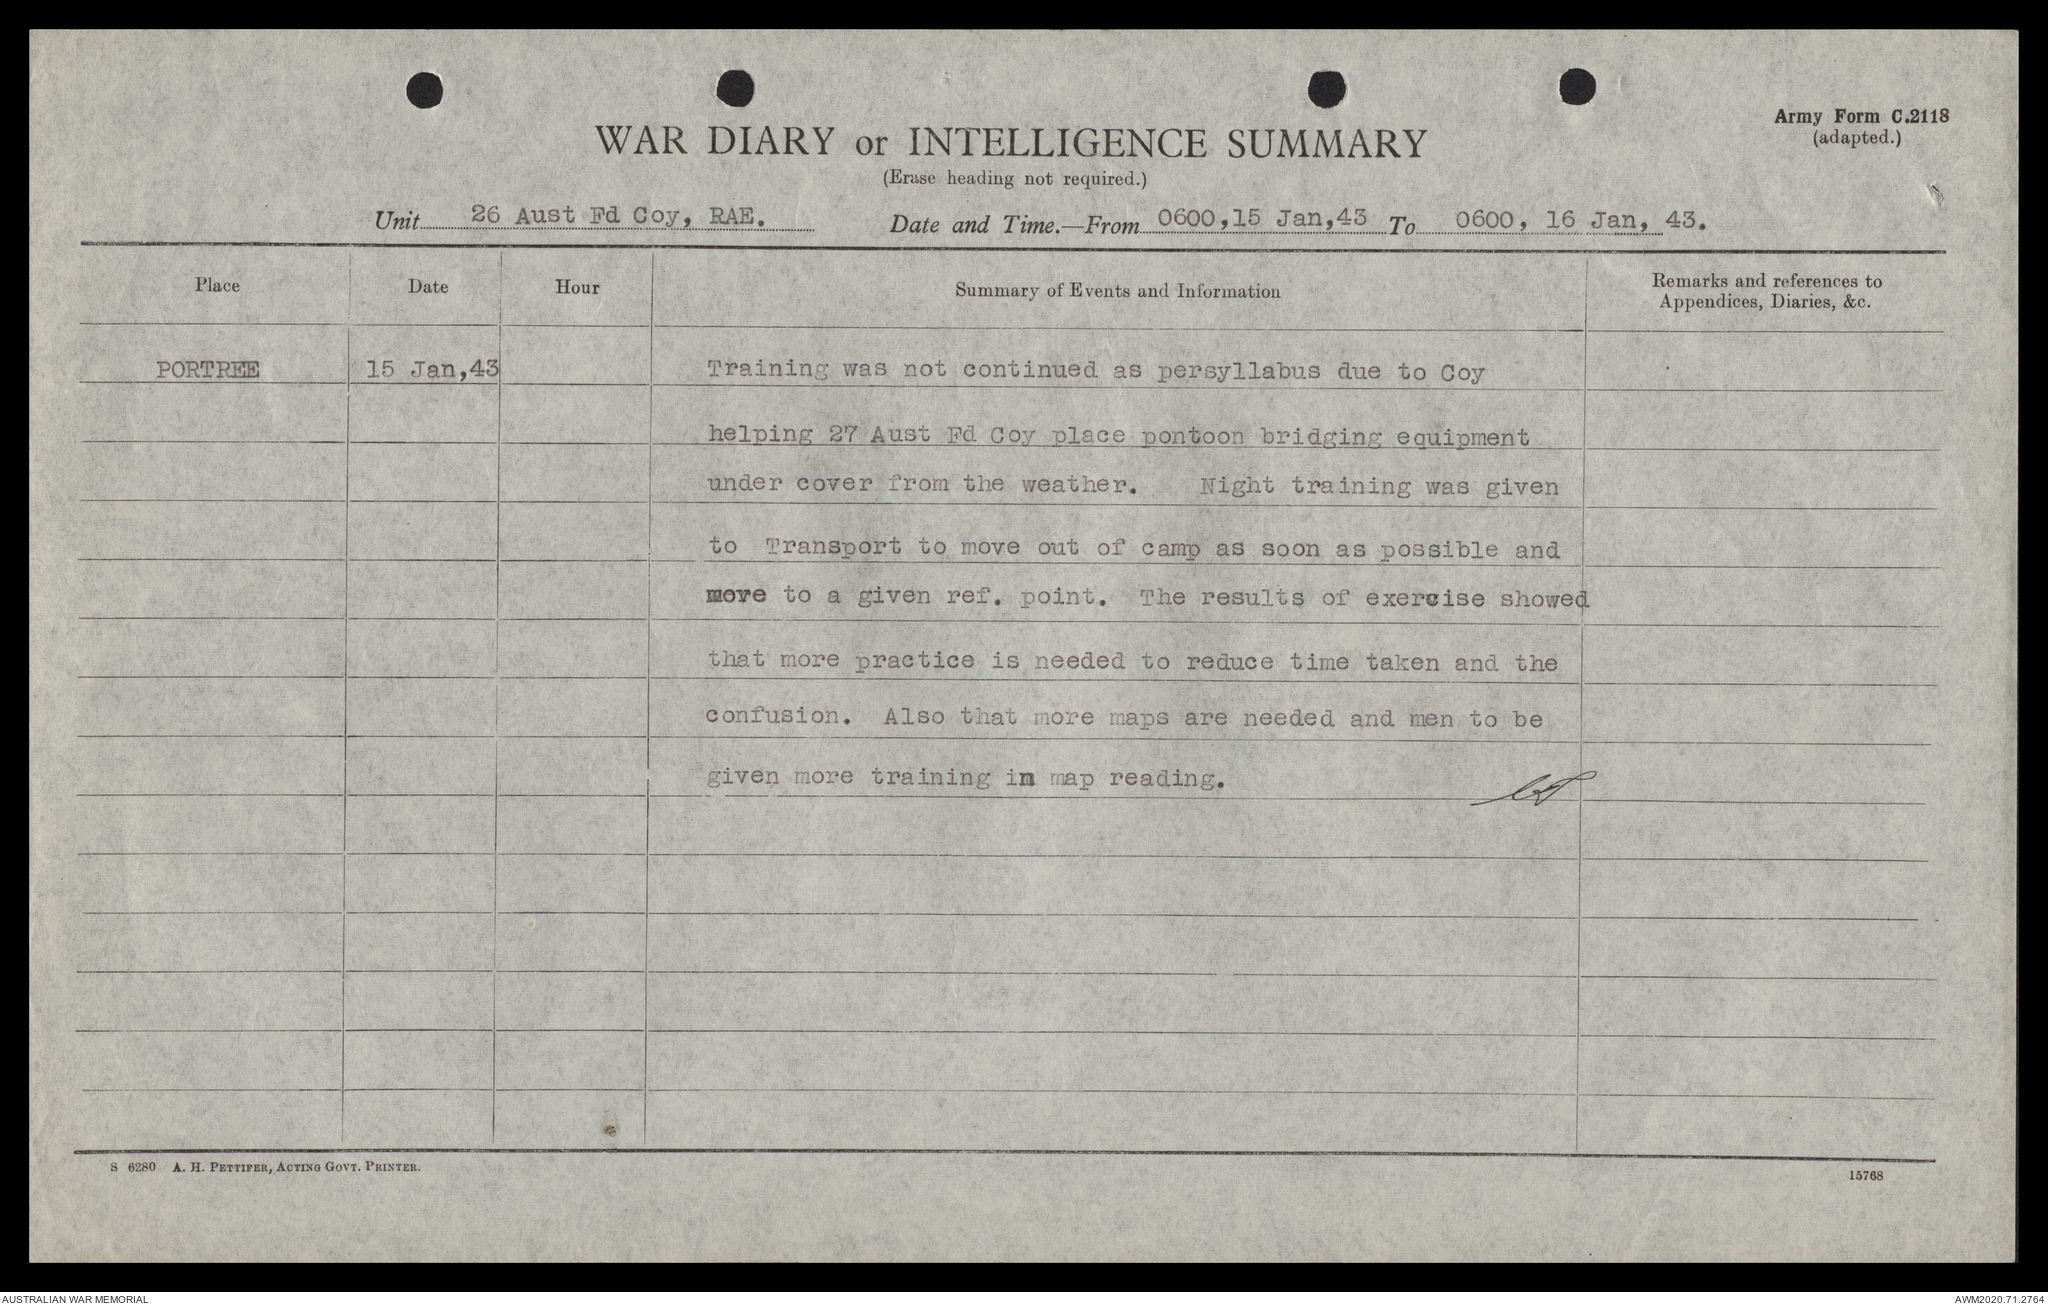 Army Form C.2118
(adapted.)
WAR DIARY or INTELLIGENCE SUMMARY
(Erase heading not required.)
Unit 26 Aust Fd Coy, RAE. Date and Time.—From 0600,15 Jan,43 To 0600, 16 Jan, 43.
Place Date Hour Summary of Events and Information Remarks and references to
Appendices, Diaries, &c.
PORTREE 15 Jan,43 Training was not continued as persyllabus due to Coy
helping 27 Aust Fd Coy place pontoon bridging equipment
under cover from the weather. Night training was given
to Transport to move out of camp as soon as possible and
move to a given ref. point. The results of exercise showed
that more practice is needed to reduce time taken and the
confusion. Also that more maps are needed and men to be
given more training in map reading.
S 6280 A. H. PETTIFER, ACTING GOVT. PRINTER.
15768
AUSTRALIAN WAR MEMORIAL
AWM2020.71.2764